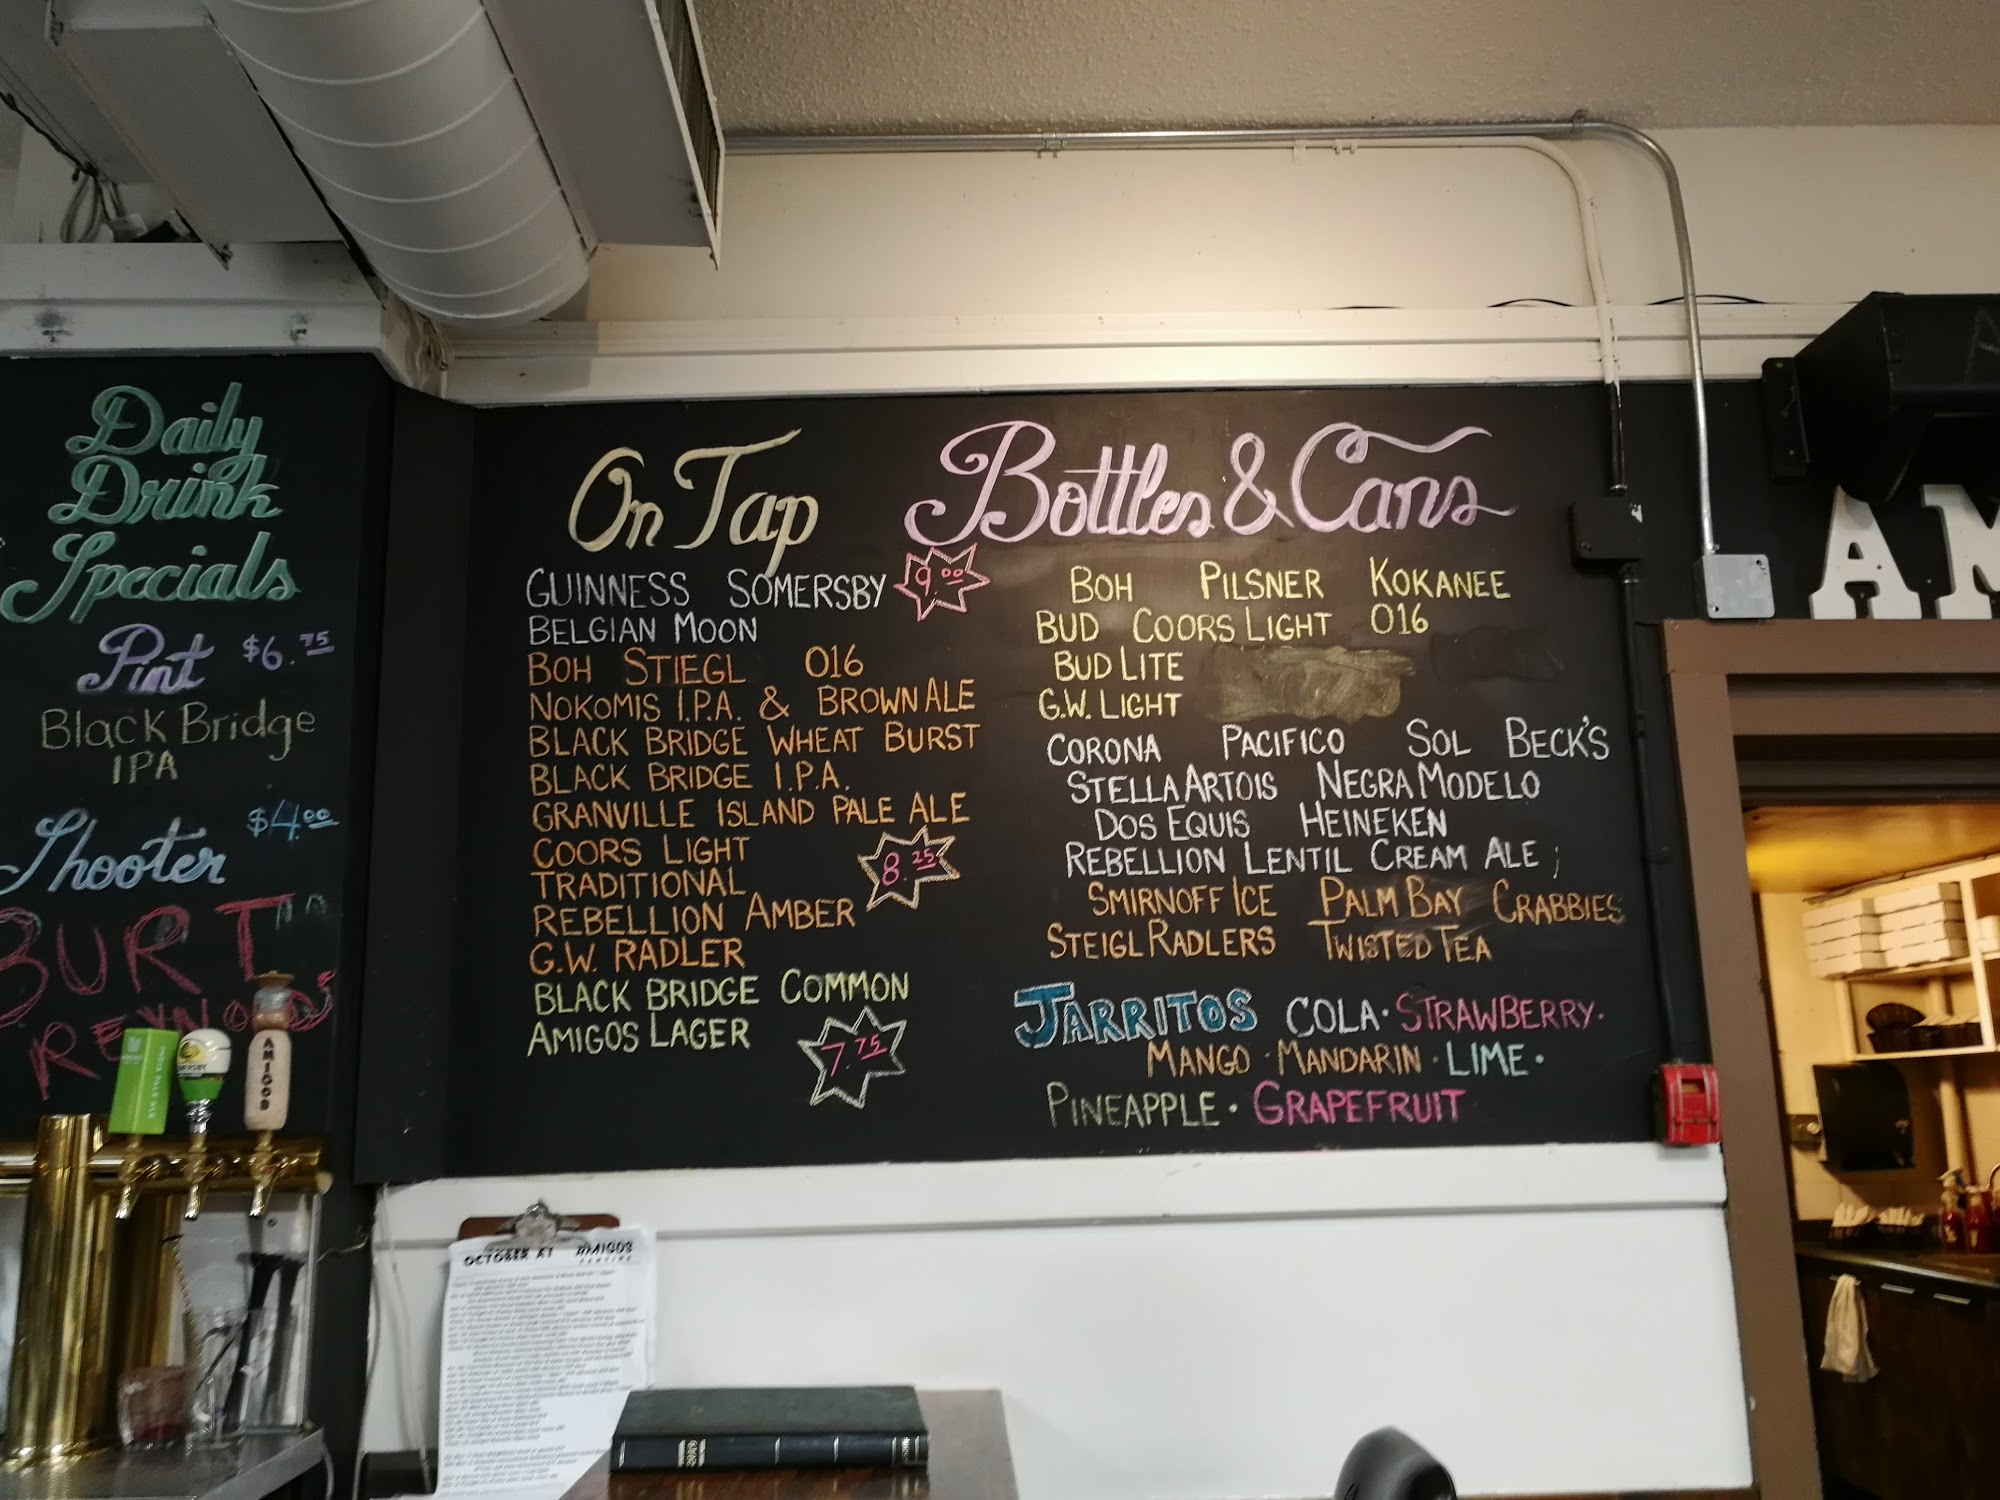 Daily
Drink
Specials
Pint $6.75
Black Bridge
IPA
Shooter $4.00
BURT
REYNOLDS
AMIGOS
On Tap
GUINNESS SOMERSBY 9.00
BELGIAN MOON
BOH STIEGL 016
NOKOMIS I.P.A. & BROWN ALE
BLACK BRIDGE WHEAT BURST
BLACK BRIDGE I.P.A.
GRANVILLE ISLAND PALE ALE
COORS LIGHT
TRADITIONAL 8.25
REBELLION AMBER
G.W. RADLER
BLACK BRIDGE COMMON
AMIGOS LAGER 7.75
Bottles & Cans
BOH PILSNER KOKANEE
BUD COORS LIGHT 016
BUD LITE
G.W. LIGHT
CORONA PACIFICO SOL BECK'S
STELLA ARTOIS NEGRA MODELO
DOS EQUIS HEINEKEN
REBELLION LENTIL CREAM ALE ;
SMIRNOFF ICE PALM BAY CRABBIES
STEIGL RADLERS TWISTED TEA
JARRITOS COLA · STRAWBERRY ·
MANGO · MANDARIN · LIME ·
PINEAPPLE · GRAPEFRUIT
AM
OCTOBER AT AMIGOS